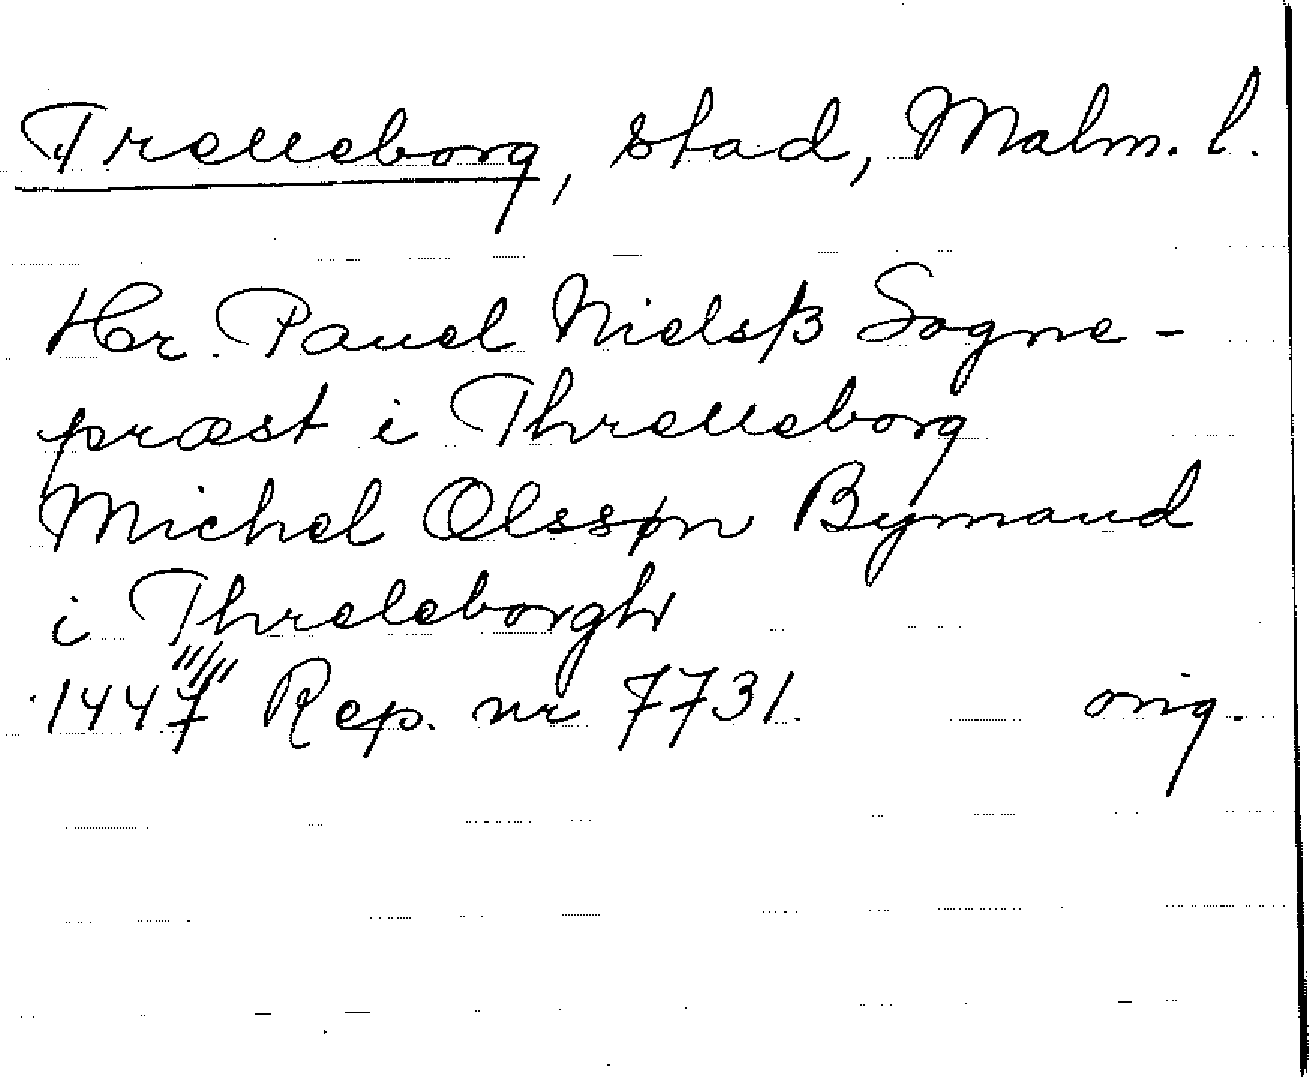 Trelleborg, stad, Malm. l.
Hr. Pauel Nielsß Sogne-
præst i Threlleborg
Michel Olssøn Bymand
i Threleborgh
1447 Rep. nr 7731. orig.